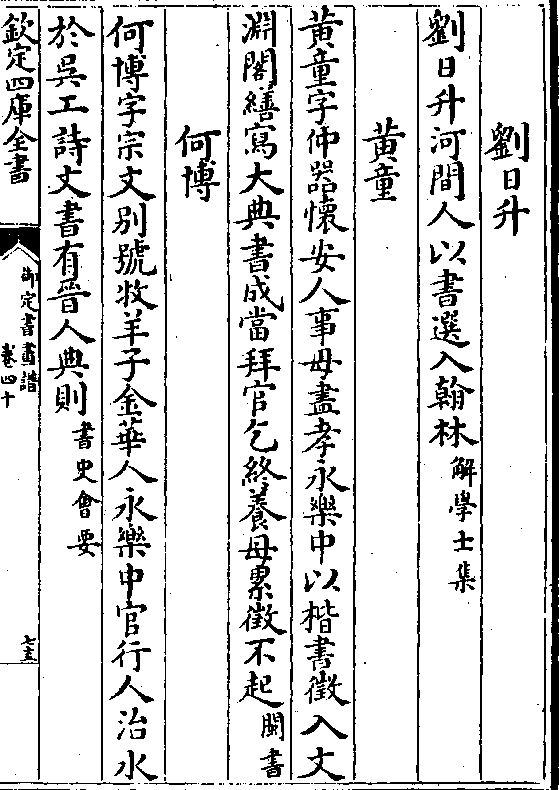 劉日升
劉日升河間人以書選入翰林解學士集
黃童
黃童字仲器懷安人事母盡孝永樂中以楷書徵入文
淵閣繕寫大典書成當拜官乞終養母累徵不起閩書
何博
何博字宗文别號牧羊子金華人永樂中官行人治水
於吳工詩文書有晉人典則書史會要
欽定四庫全書
御定書畫譜
卷四十
七五